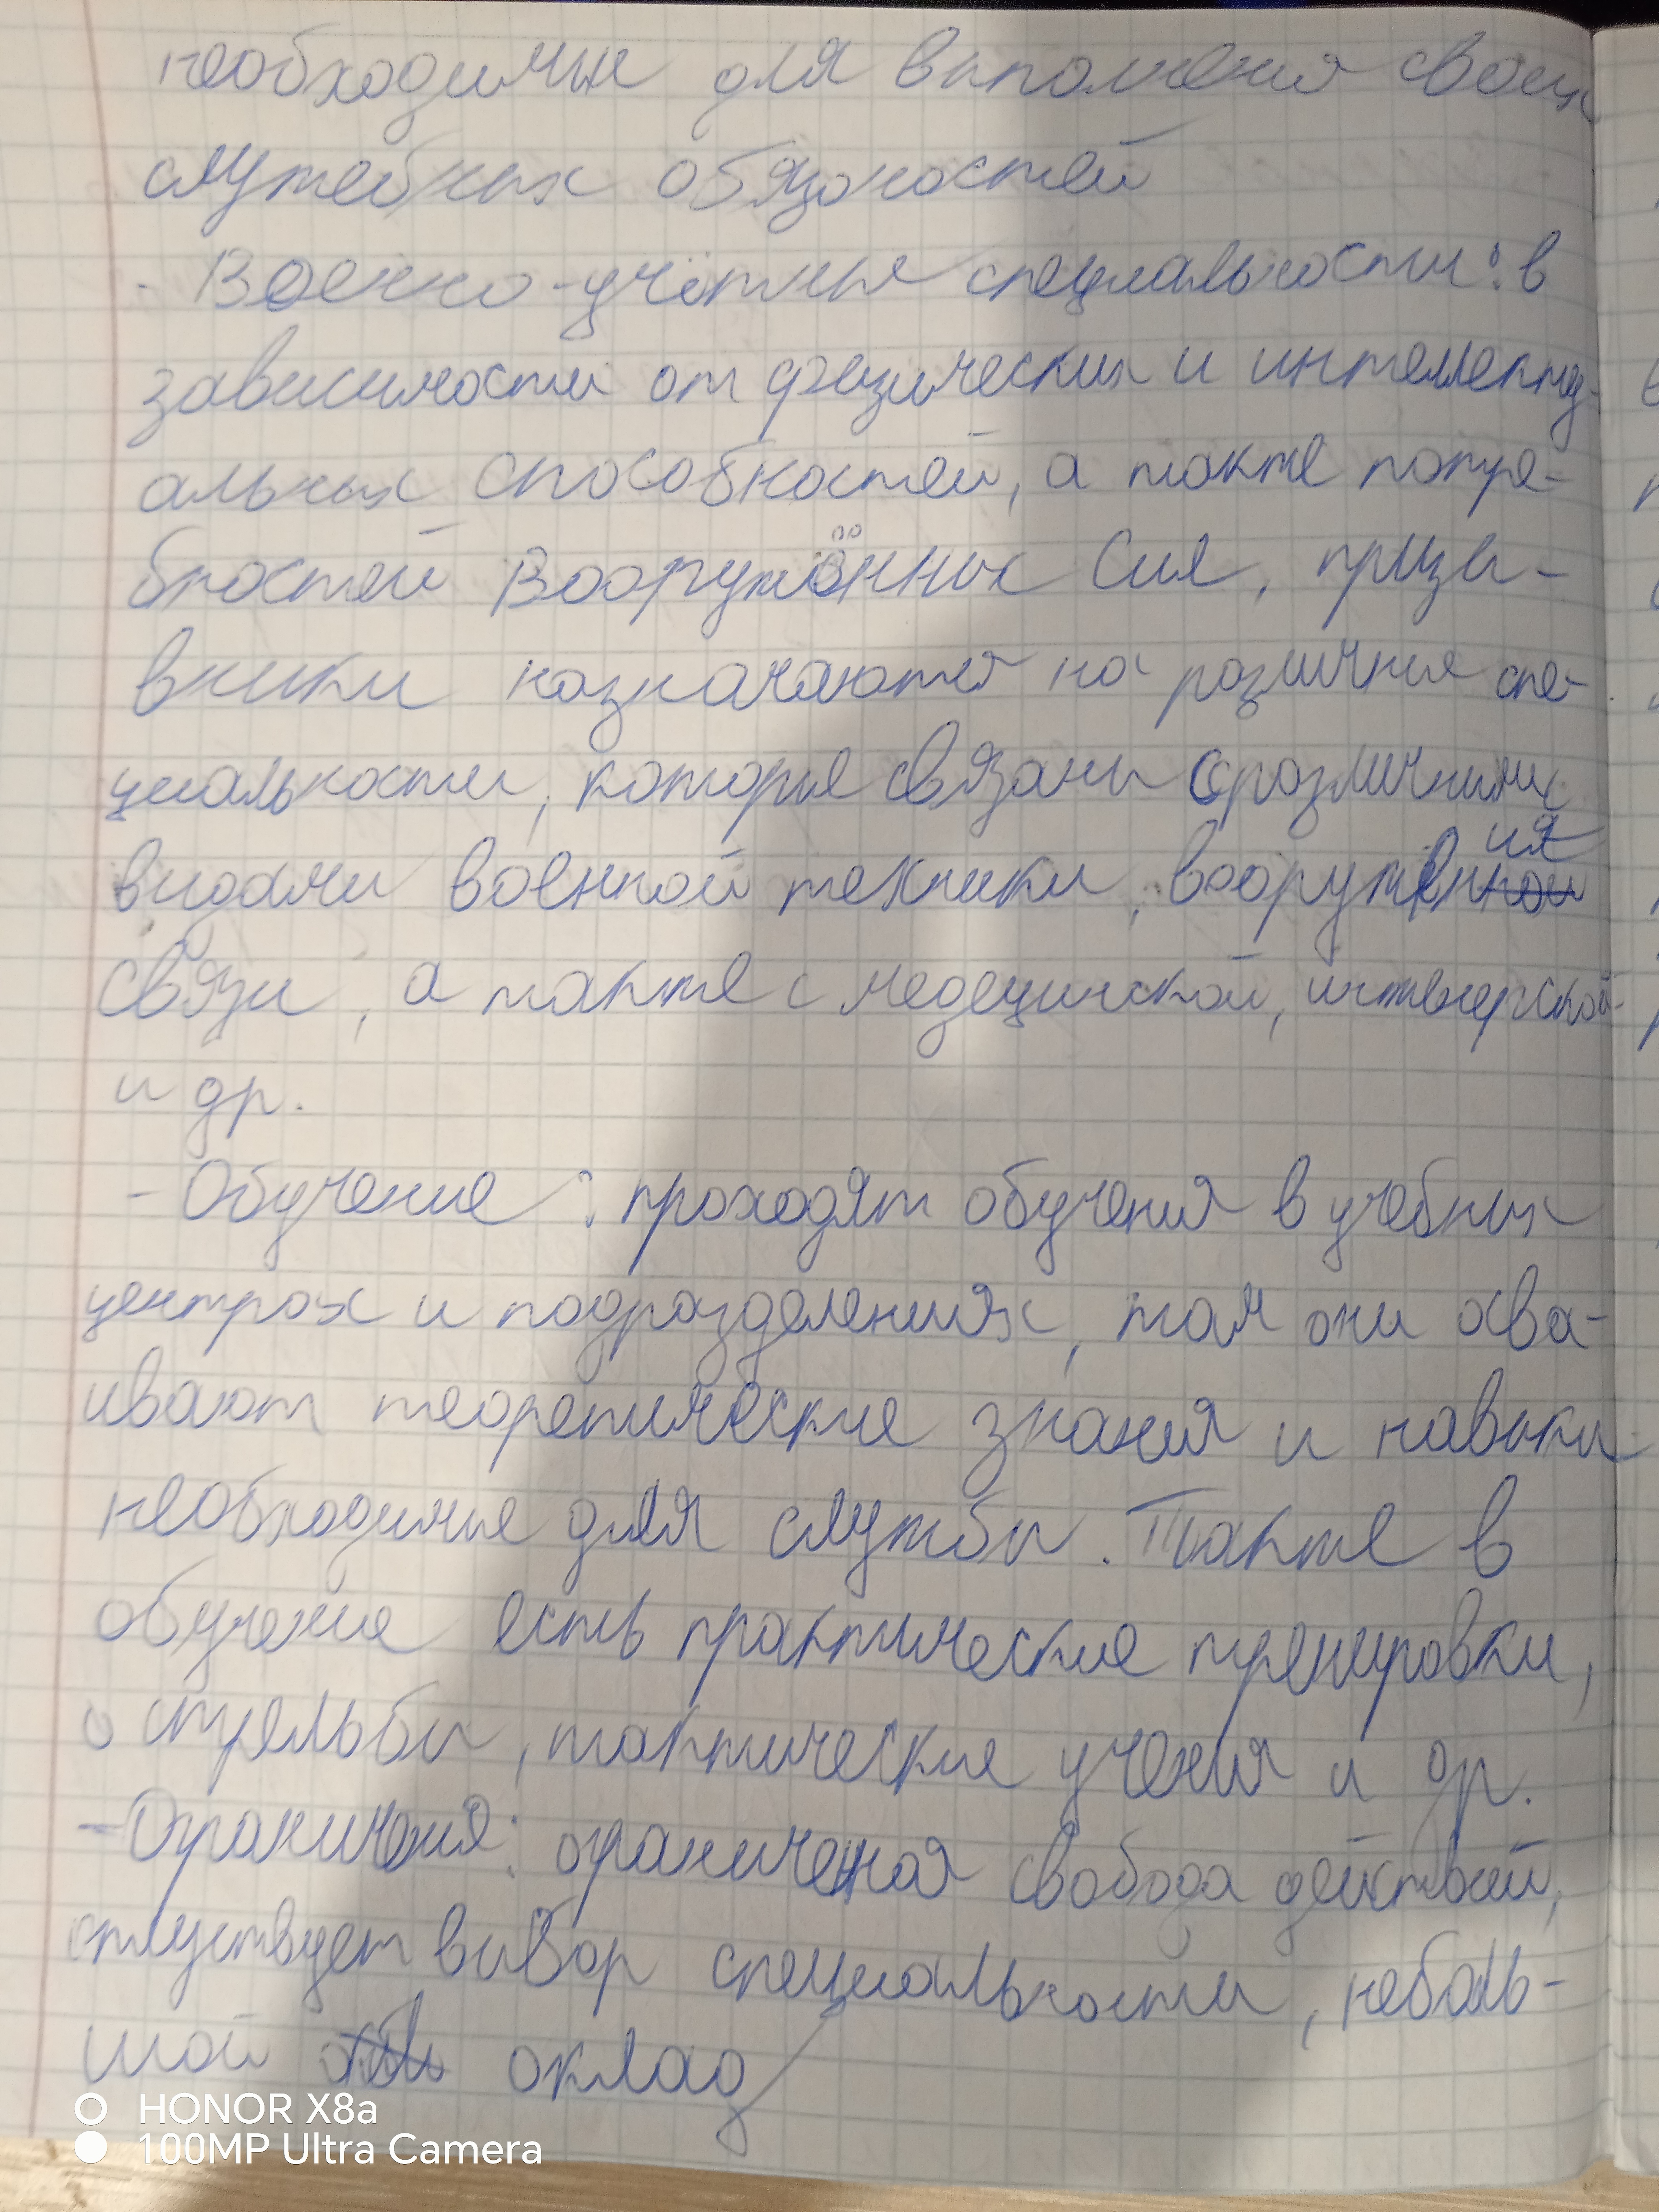 необходимые для выполнения своих
служебных обязоностей
- Военно-учётные специальности: в
зависимости от физических и интеллекту-
альных способностей, а также потре-
бностей Вооружённых Сил, призы-
вники назначаются на различные спе-
циальности, которые связаны с различными
видами военной техники, вооружения
связи, а также с медецинской, инженерской
и др.
- Обучение: проходят обучения в учебных
центрах и подразделениях, там они осва-
ивают теоретические знания и навыки
необходимые для службы. Также в
обучение есть практические тренировки,
стрельбы, тактические учения и др.
- Ограничения: ограниченая свобода действий,
отсуствует выбор специальности, неболь-
шой оклад
HONOR X8a
100MP Ultra Camera